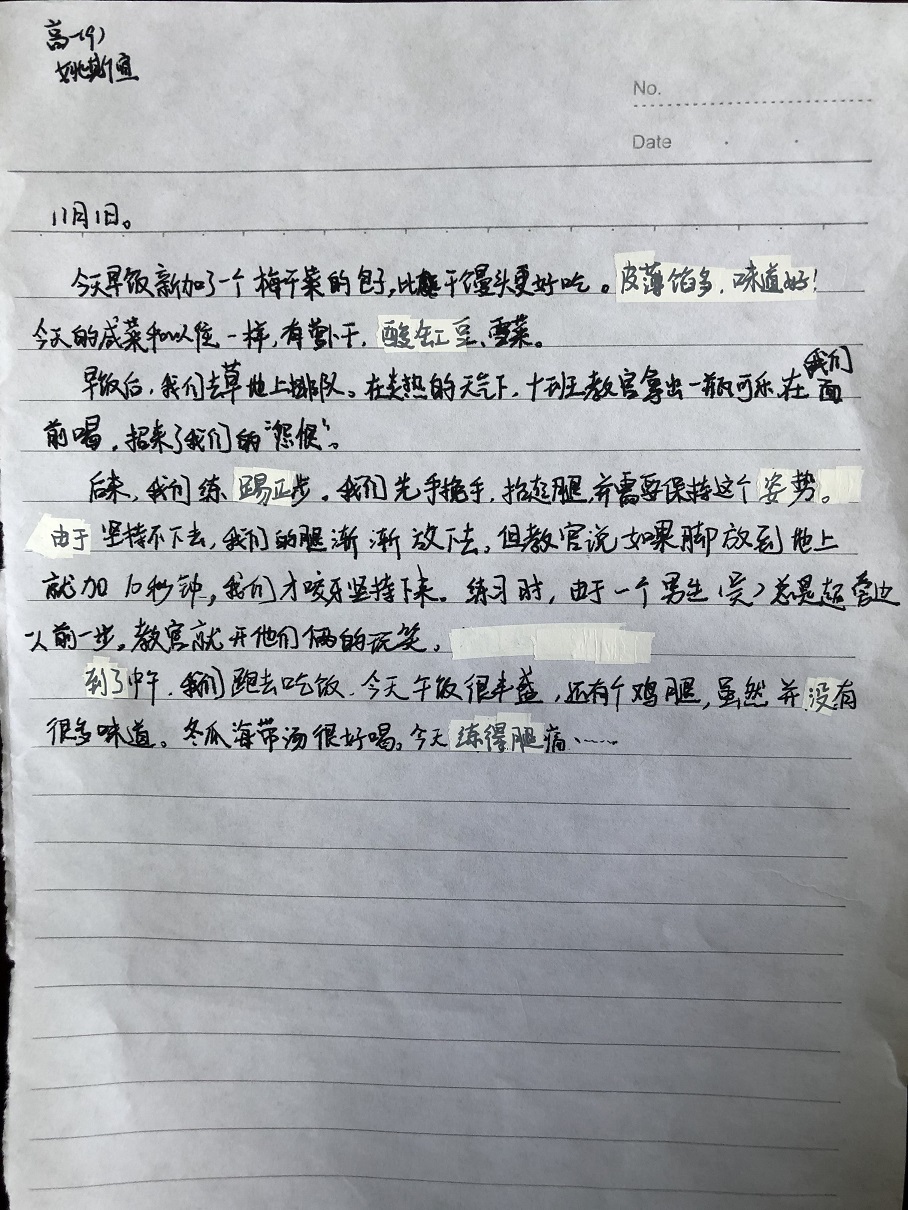 高一(9)
姚斯宣
No.
Date
11月1日。
今天早饭新加了一个梅干菜的包子,比干馒头更好吃。皮薄馅多,味道好!
今天的咸菜和以往一样,有萝卜干,酸缸豆、雪菜。
早饭后,我们去草地上排队。在炎热的天气下,十班教官拿出一瓶可乐,在我们面
前喝,招来了我们的“怨恨”。
后来,我们练踢正步。我们先手挽手,抬起腿,并需要保持这个姿势。
由于坚持不下去,我们的腿渐渐放下去。但教官说如果脚放到地上
就加10秒钟,我们才咬牙坚持下来。练习时,由于一个男生(吴)总是超旁边
人前一步。教官就开他们俩的玩笑。
到了中午,我们跑去吃饭。今天午饭很丰盛,还有个鸡腿,虽然并没有
很多味道。冬瓜海带汤很好喝。今天练得腿痛……